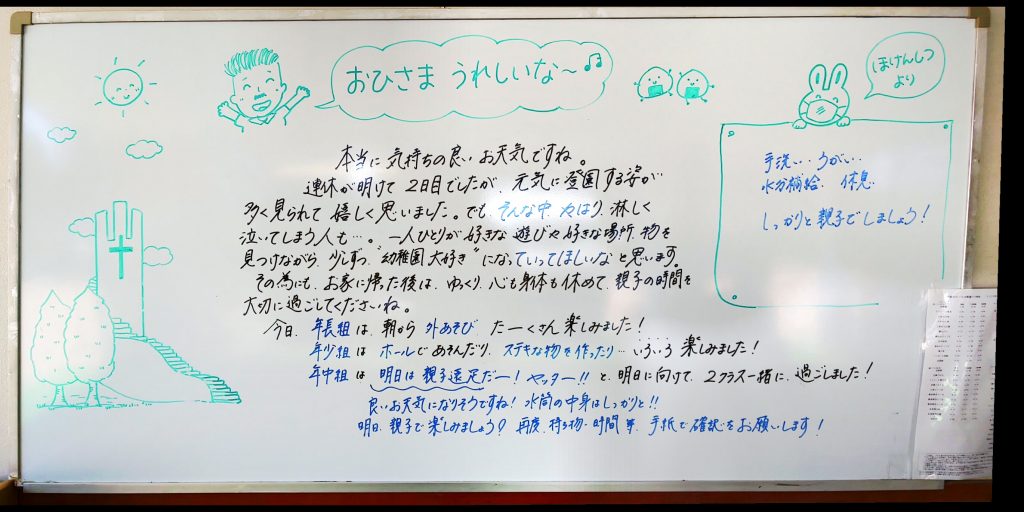 おひさま うれしいな〜♫
本当に気持ちの良いお天気ですね。
連休が明けて2日目でしたが、元気に登園する姿が
多く見られて嬉しく思いました。でも、そんな中、やはり、淋しく
泣いてしまう人も…。一人ひとりが好きな遊びや好きな場所、物を
見つけながら、少しずつ“幼稚園大好き”になっていってほしいなと思います。
その為にも、お家に帰った後は、ゆっくり、心も身体も休めて、親子の時間を
大切に過ごしてくださいね。
今日、年長組は、朝から外あそび たーくさん楽しみました！
年少組は ホールであそんだり、ステキな物を作ったり…いろいろ楽しみました！
年中組は 明日は親子遠足だー！ヤッター!!と、明日に向けて、2クラス一緒に、過ごしました！
良いお天気になりそうですね！水筒の中身はしっかりと!!
明日、親子で楽しみましょう？再度、持ち物・時間等、手紙で確認をお願いします！
ほけんしつ
より
手洗い・うがい・
水分補給、休息
しっかりと親子でしましょう！